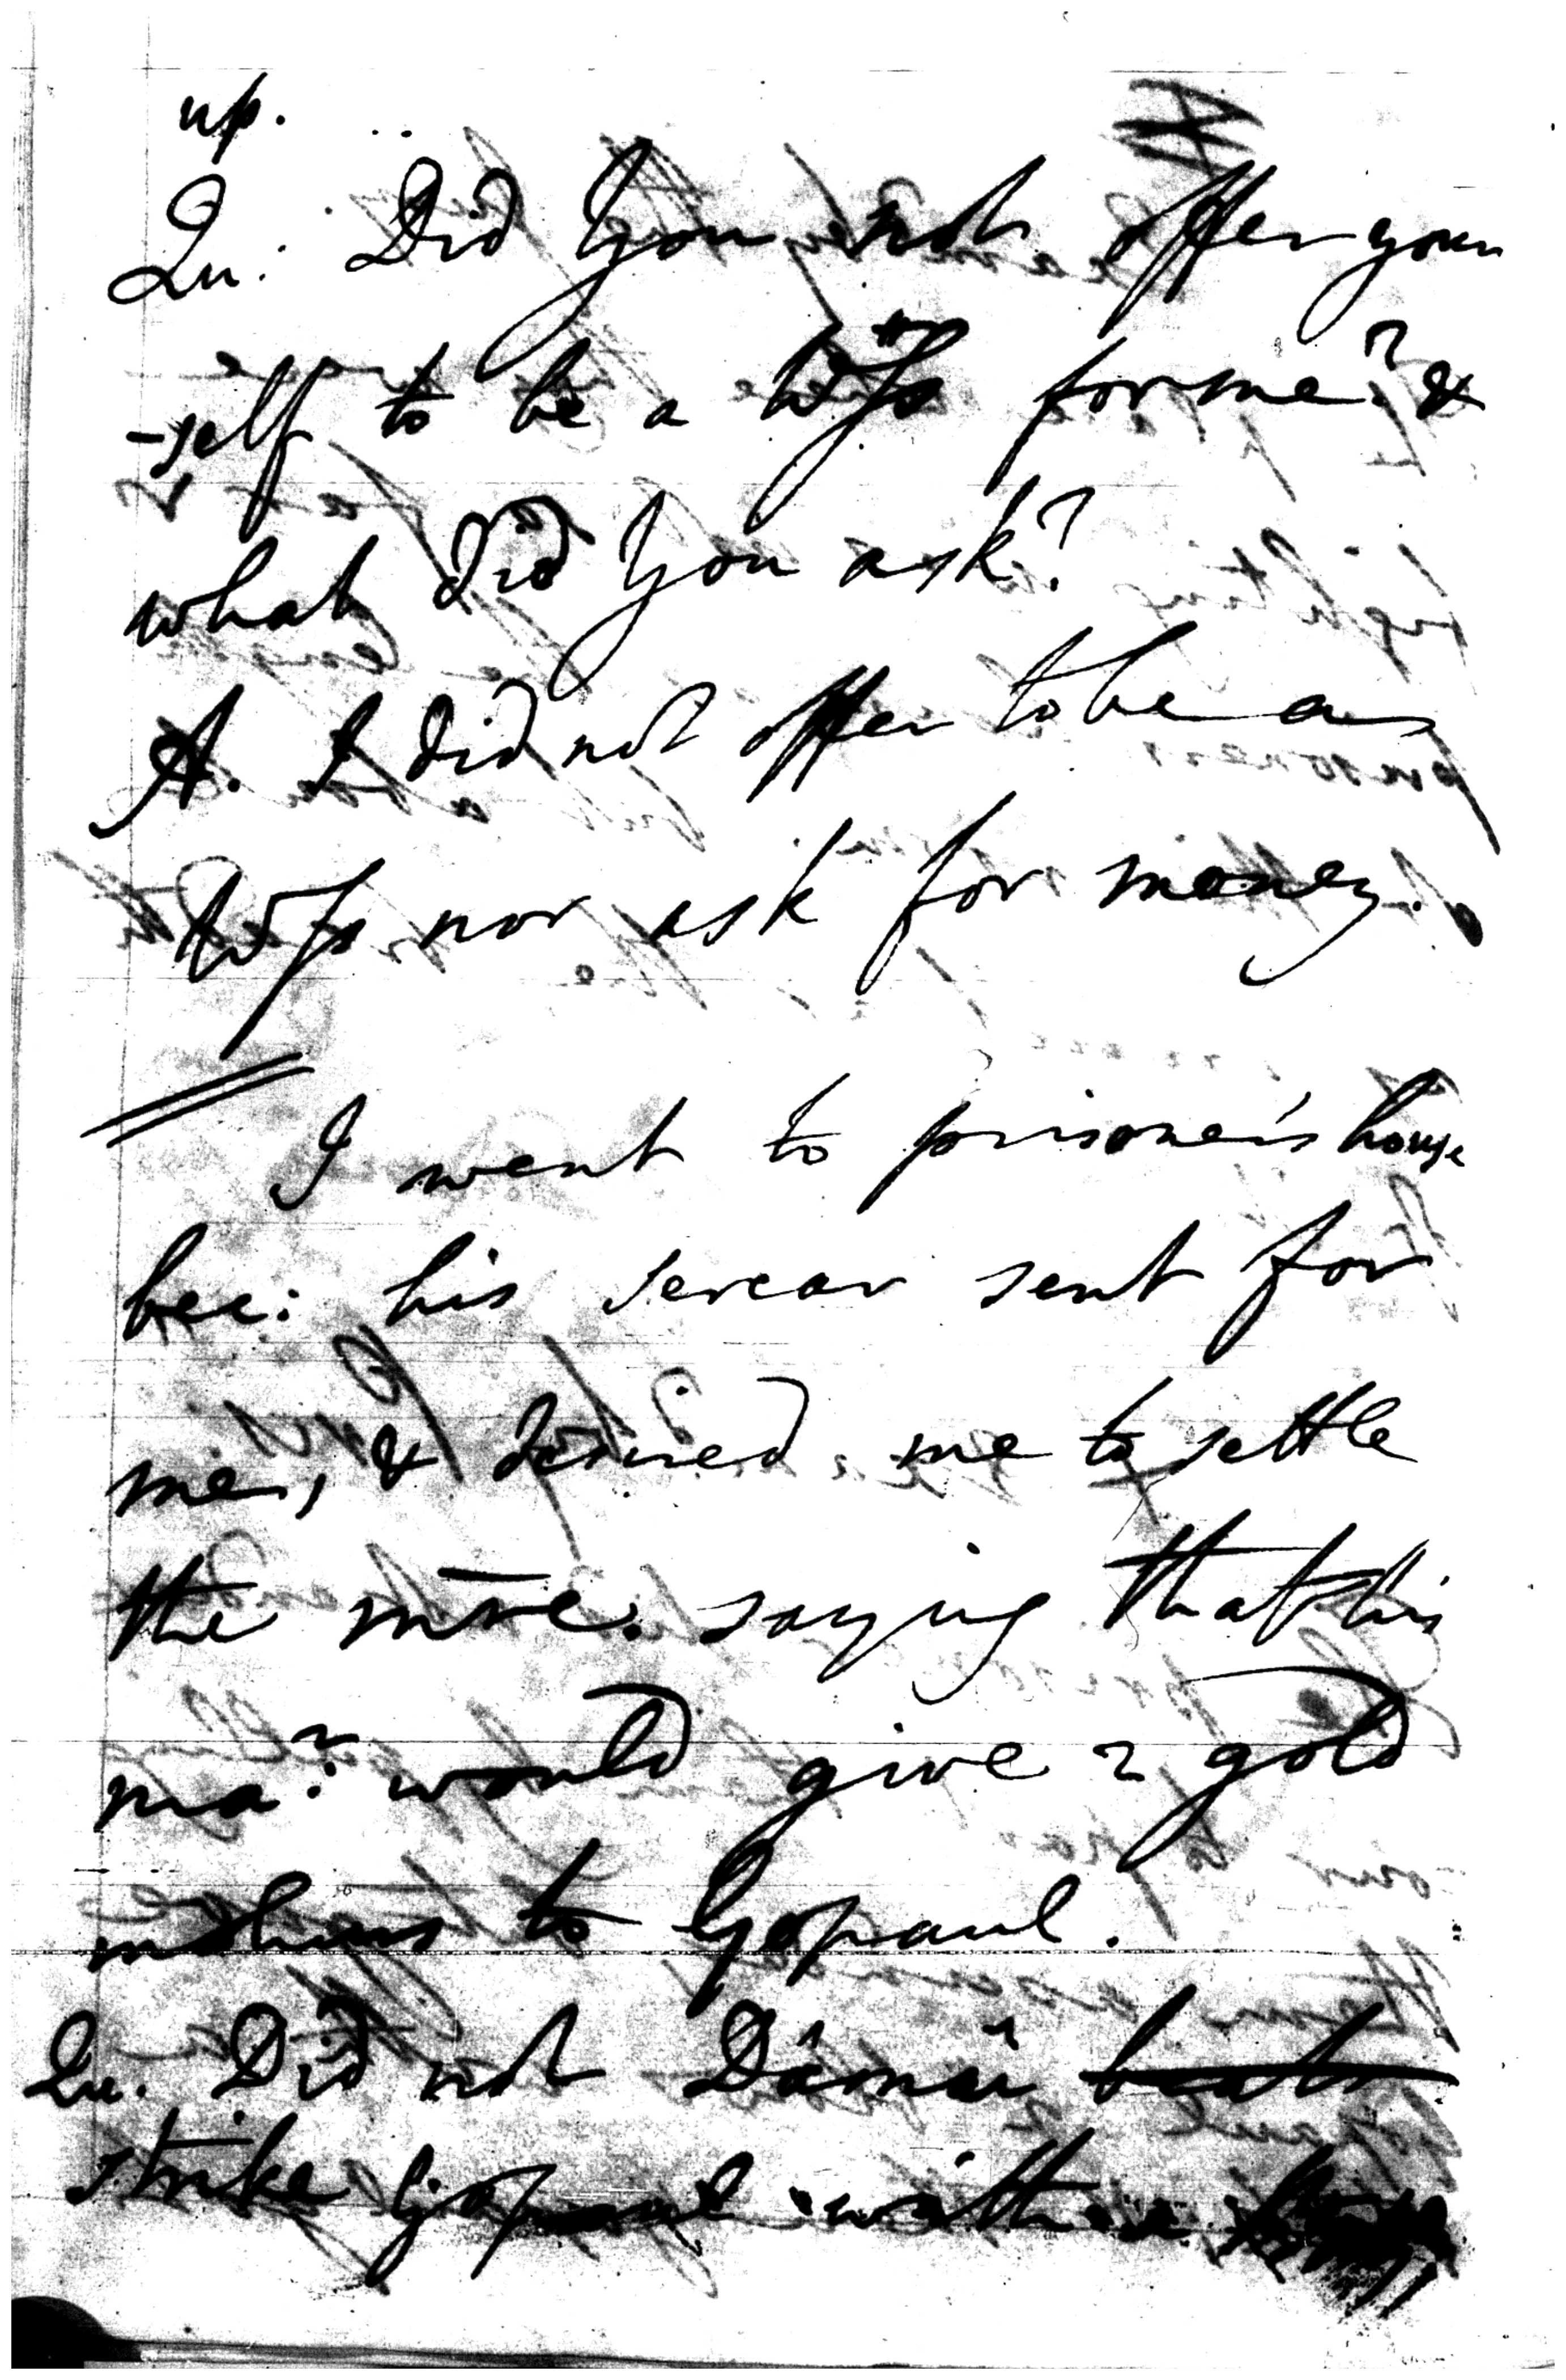 up.
Qu: Did you not offer your
-self to be a Wss for me? &
what did you ask?
A. I did not offer to be a
Wss nor ask for money.
I went to prisoner's house
bec: his sercar sent for
me, & desired me to settle
the mre. saying that his
mar: would give 2 gold
mohurs to Gopaul.
Qu. Did not Dâmâi beat
strike Gopaul with a